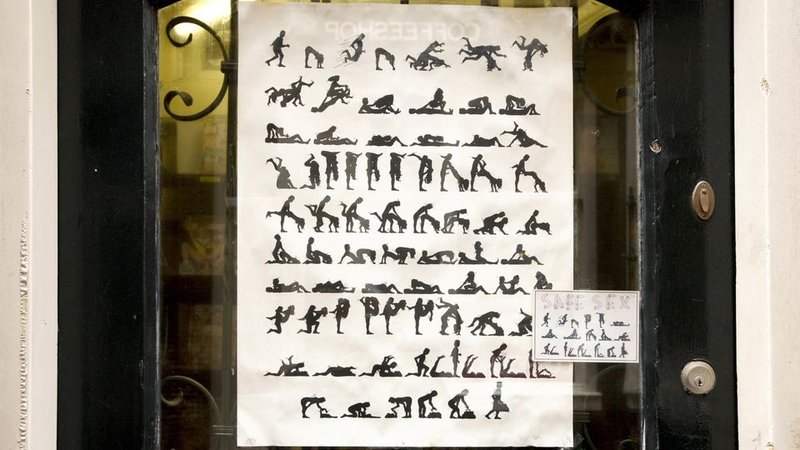 COFFEESHOP
SAFE SEX